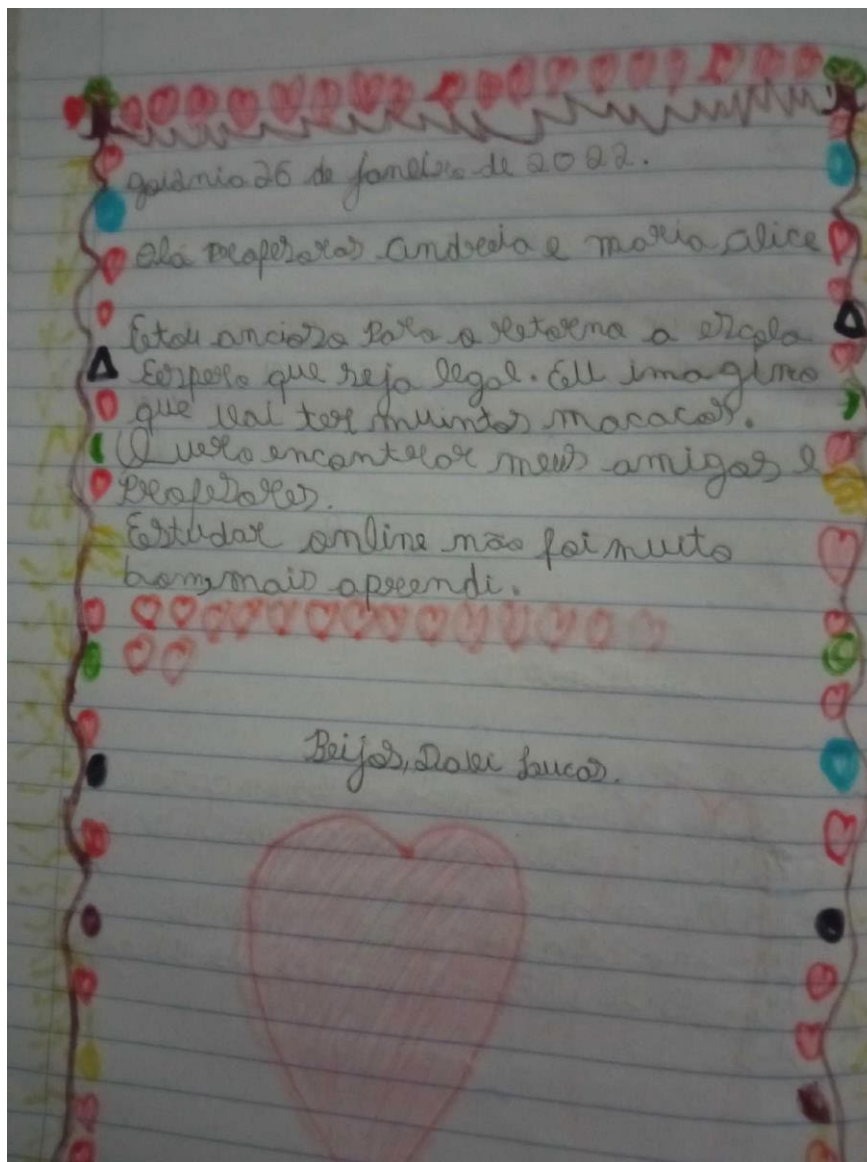 goiânia 26 de janeiro de 2022.
Olá professoras Andreia e maria alice
Estou ancioso para o retorno a escola
Eespero que seja legal. Eu imagino
que vai ter muintos macacos.
Quero encontrar meus amigos e
professores.
Estudar online não foi muito
bom, mais apreendi.
Beijos, Davi Lucas.